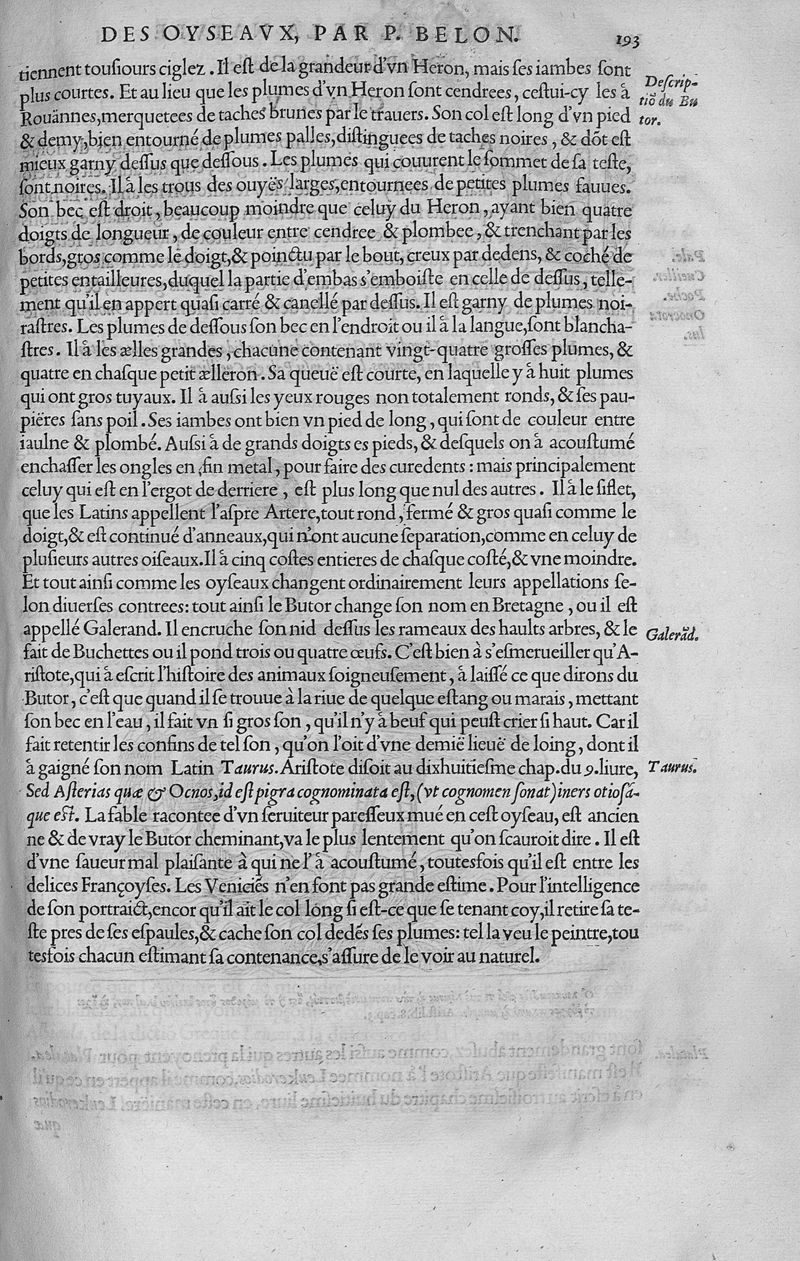 DES OYSEAVX, PAR P. BELON. 193
tiennent touſiours ciglez. Il eſt de la grandeur d'vn Heron, mais ſes iambes ſont
plus courtes. Et au lieu que les plumes d'vn Heron ſont cendrees, ceſtui-cy les à
Rouännes, merquetees de taches brunes par le trauers. Son col eſt long d'vn pied
& demy, bien entourné de plumes palles, diſtinguees de taches noires, & dõt eſt
mieux garny deſſus que deſſous. Les plumes qui couurent le ſommet de ſa teſte,
ſont noires. Il à les trous des ouyës larges, entournees de petites plumes fauues.
Son bec eſt droit, beaucoup moindre que celuy du Heron, ayant bien quatre
doigts de longueur, de couleur entre cendree & plombee, & trenchant par les
bords, gros comme le doigt, & poinctu par le bout, creux par dedens, & coché de
petites entailleures, duquel la partie d'embas s'emboiſte en celle de deſſus, telle-
ment qu'il en appert quaſi carré & canellé par deſſus. Il eſt garny de plumes noi-
raſtres. Les plumes de deſſous ſon bec en l'endroit ou il à la langue, ſont blancha-
ſtres. Il à les ælles grandes, chacune contenant vingt-quatre groſſes plumes, &
quatre en chaſque petit ælleron. Sa queuë eſt courte, en laquelle y à huit plumes
qui ont gros tuyaux. Il à auſsi les yeux rouges non totalement ronds, & ſes pau-
piëres ſans poil. Ses iambes ont bien vn pied de long, qui ſont de couleur entre
iaulne & plombé. Auſsi à de grands doigts es pieds, & deſquels on à acouſtumé
enchaſſer les ongles en fin metal, pour faire des curedents: mais principalement
celuy qui eſt en l'ergot de derriere, eſt plus long que nul des autres. Il à le ſiflet,
que les Latins appellent l'aſpre Artere, tout rond, fermé & gros quaſi comme le
doigt, & eſt continué d'anneaux, qui n'ont aucune ſeparation, comme en celuy de
pluſieurs autres oiſeaux. Il à cinq coſtes entieres de chaſque coſté, & vne moindre.
Et tout ainſi comme les oyſeaux changent ordinairement leurs appellations ſe-
lon diuerſes contrees: tout ainſi le Butor change ſon nom en Bretagne, ou il eſt
appellé Galerand. Il encruche ſon nid deſſus les rameaux des haults arbres, & le
fait de Buchettes ou il pond trois ou quatre œufs. C'eſt bien à s'eſmerueiller qu'A-
riſtote, qui à eſcrit l'hiſtoire des animaux ſoigneuſement, à laiſſé ce que dirons du
Butor, c'eſt que quand il ſe trouue à la riue de quelque eſtang ou marais, mettant
ſon bec en l'eau, il fait vn ſi gros ſon, qu'il n'y à beuf qui peuſt crier ſi haut. Car il
fait retentir les confins de tel ſon, qu'on l'oit d'vne demië lieuë de loing, dont il
à gaigné ſon nom Latin Taurus. Ariſtote diſoit au dixhuitieſme chap. du 9. liure,
Sed Aſterias quæ & Ocnos, id eſt pigra cognominata eſt, (vt cognomen ſonat) iners otioſá-
que eſt. La fable racontee d'vn ſeruiteur pareſſeux mué en ceſt oyſeau, eſt ancien
ne & de vray le Butor cheminant, va le plus lentement qu'on ſcauroit dire. Il eſt
d'vne ſaueur mal plaiſante à qui ne l'à acouſtumé, toutesfois qu'il eſt entre les
delices Françoyſes. Les Veniciẽs n'en font pas grande eſtime. Pour l'intelligence
de ſon portraict, encor qu'il ait le col long ſi eſt-ce que ſe tenant coy, il retire ſa te-
ſte pres de ſes eſpaules, & cache ſon col dedẽs ſes plumes: tel la veu le peintre, tou
tesfois chacun eſtimant ſa contenance, s'aſſure de le voir au naturel.
Deſcrip-
tiõ du Bu
tor.
Galerãd.
Taurus.